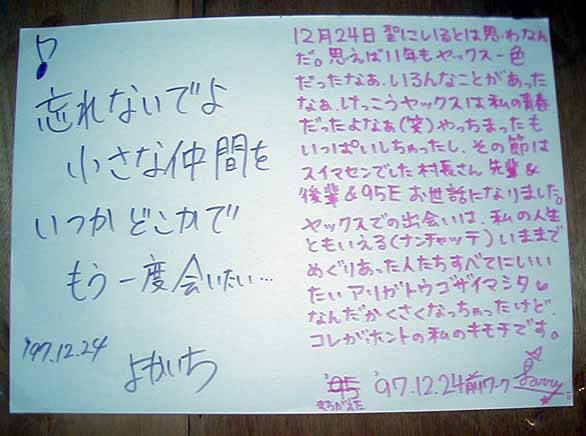 忘れないでよ
小さな仲間を
いつかどこかで
もう一度会いたい…
'97.12.24
よかいち
12月24日 聖にいるとは思わなん
だ。思えば11年もヤックス一色
だったなぁ、いろんなことがあった
なぁ、けっこうヤックスは私の青春
だったよなぁ(笑)やっちまったも
いっぱいしちゃったし、その節は
スイマセンでした 村長さん 先輩&
後輩&95E お世話になりました。
ヤックスでの出会いは、私の人生
ともいえる(ナンチャッテ)いままで
めぐりあった人たちすべてにいい
たい アリガトウゴザイマシタ
なんだかくさくなっちゃったけど、
コレがホントの私のキモチです。
'95 '97.12.24前ワーク
まちがえた